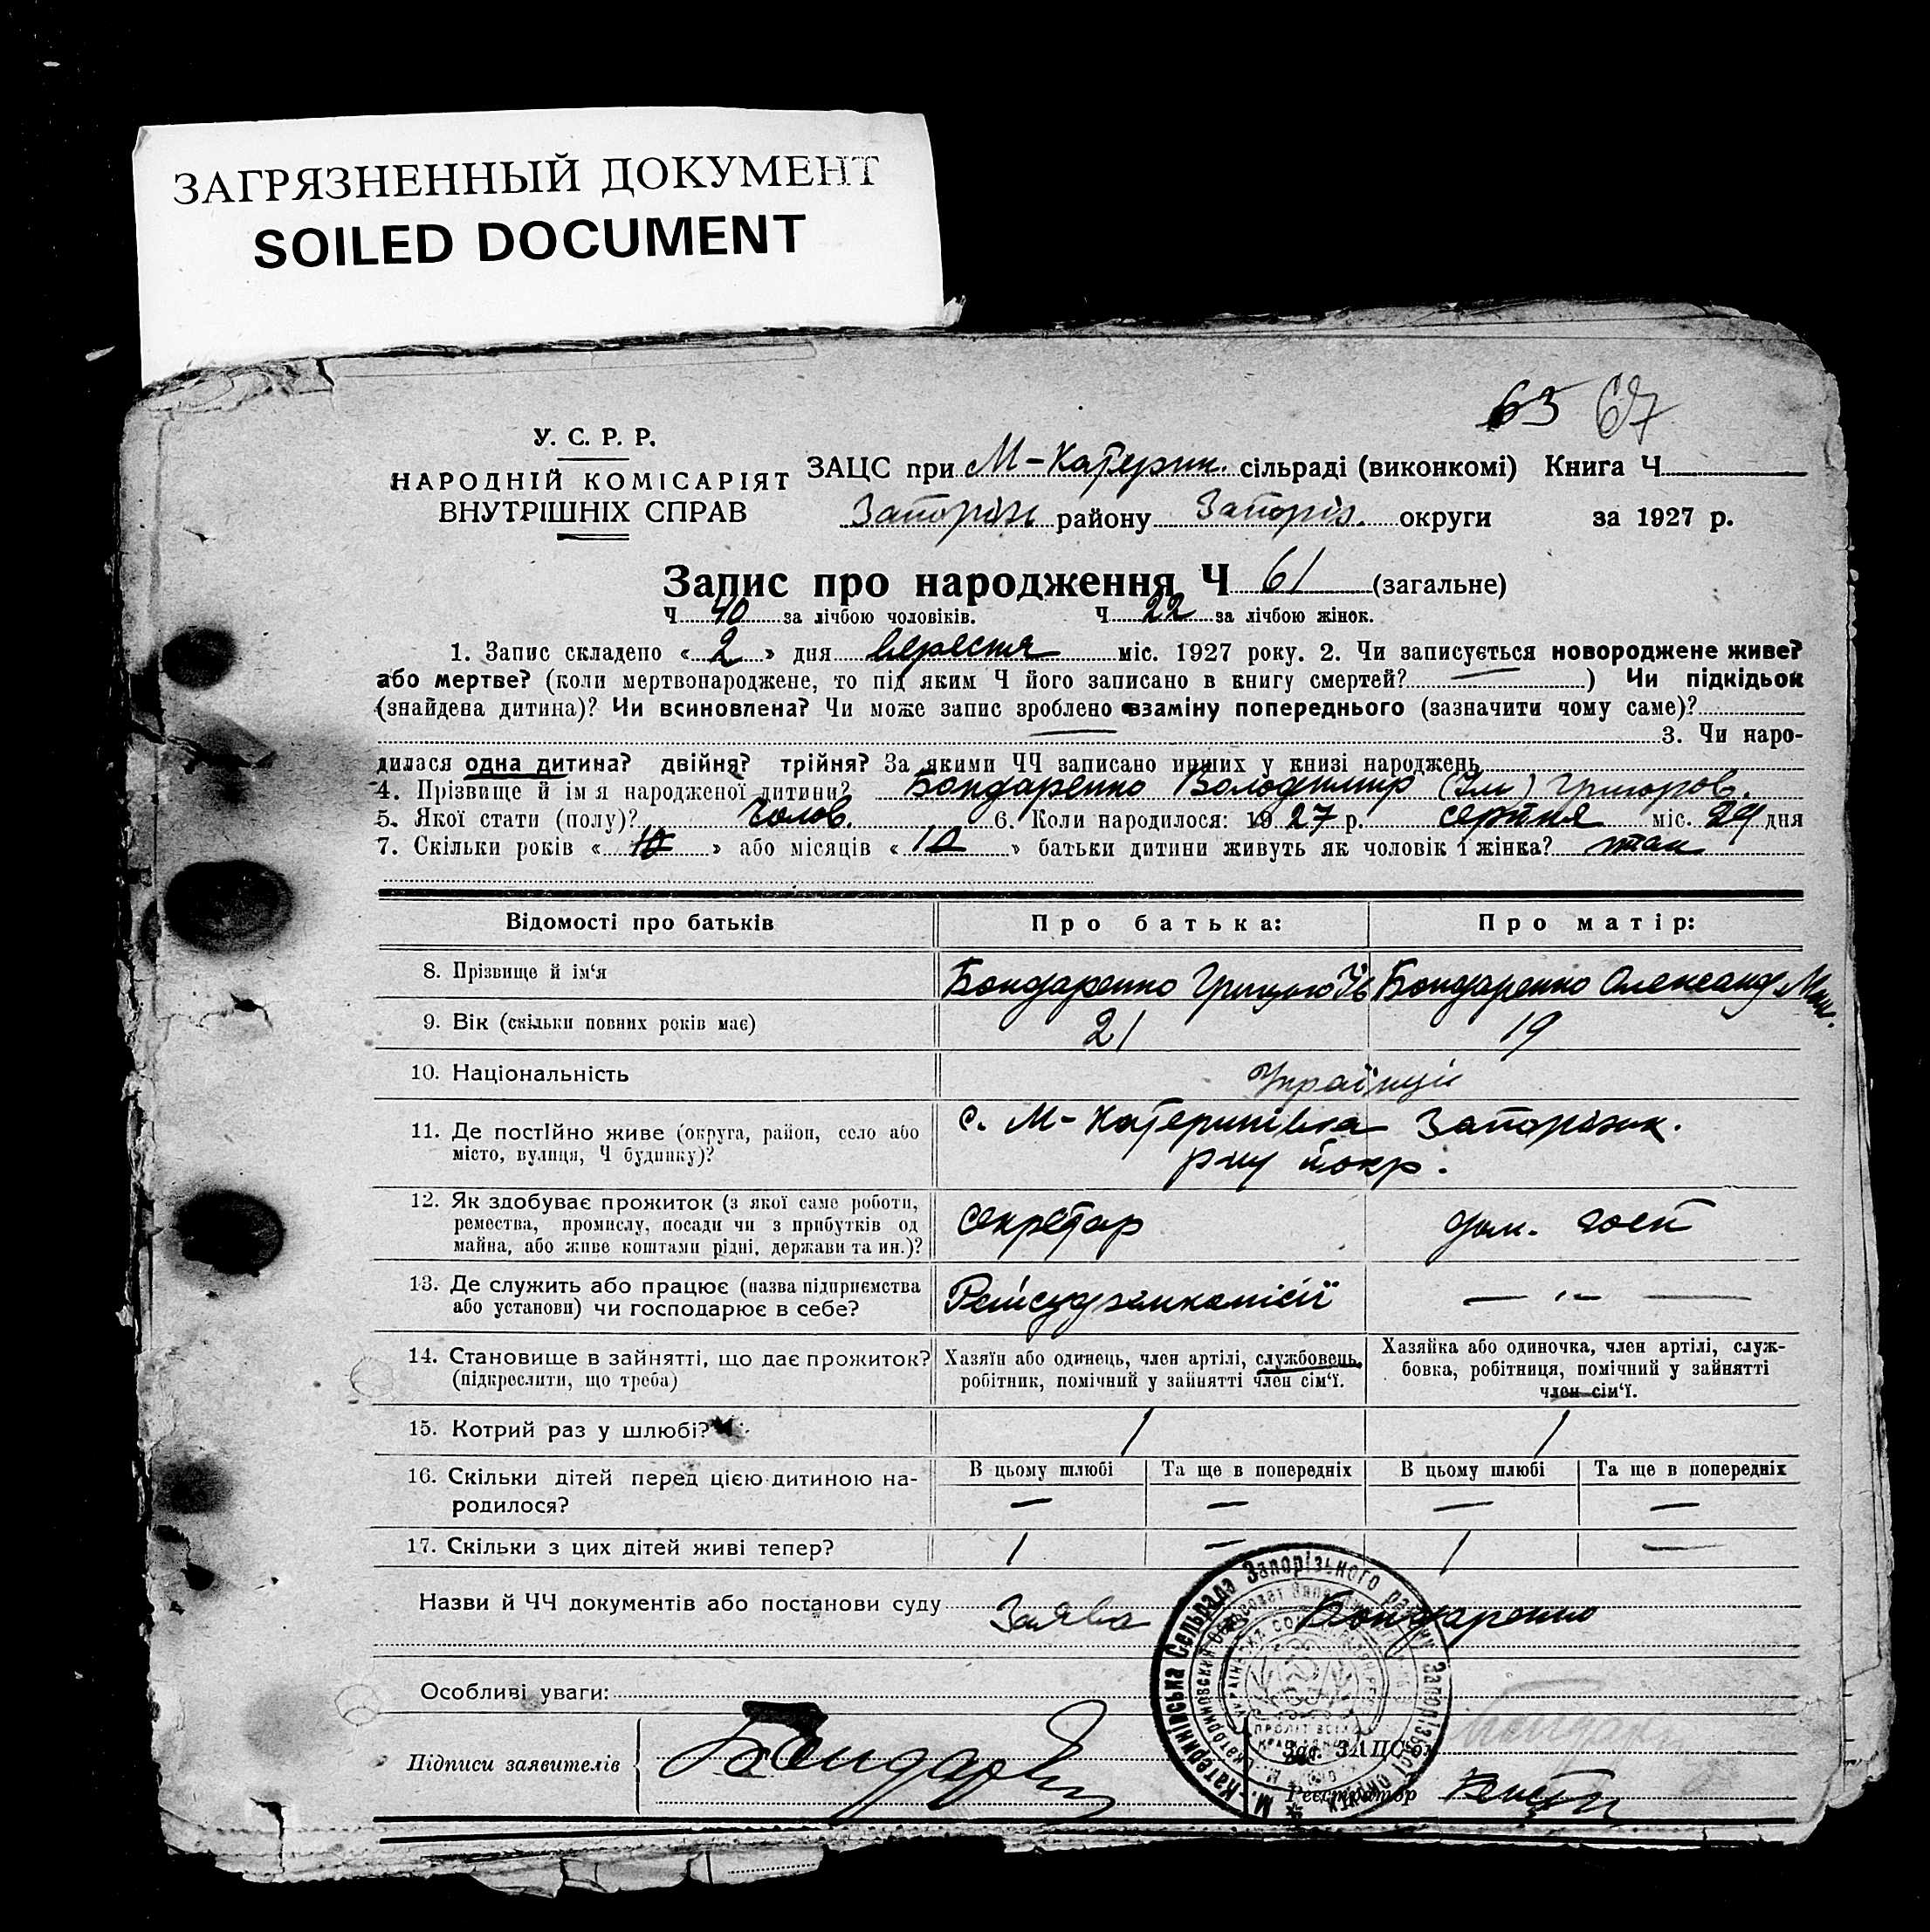 ЗАГРЯЗНЕННЫЙ ДОКУМЕНТ
SOILED DOCUMENT
63 67
У. С. Р. Р.
НАРОДНІЙ КОМІСАРІЯТ
ВНУТРІШНІХ СПРАВ
ЗАЦС при М-Катерин. сільраді (виконкомі) Книга Ч
Запоріж району Запоріз. округи за 1927 р.
Запис про народження Ч 61 (загальне)
Ч 40 за лічбою чоловіків. Ч 22 за лічбою жінок.
1. Запис складено « 2 » дня вересня міс. 1927 року. 2. Чи записується новороджене живе?
або мертве? (коли мертвонароджене, то під яким Ч його записано в книгу смертей? — ) Чи підкідьок
(знайдена дитина)? Чи всиновлена? Чи може запис зроблено взаміну попереднього (зазначити чому саме)?
— 3. Чи наро-
дилася одна дитина? двійня? трійня? За якими ЧЧ записано инших у книзі народжень
4. Прізвище й ім я народженої дитини? Бондаренко Володимир Григоров.
5. Якої стати (полу)? Чолов. 6. Коли народилося: 1927 р. серпня міс. 29 дня
7. Скільки років « 10 » або місяців « 10 » батьки дитини живуть як чоловік і жінка? так
Відомості про батьків Про батька: Про матір:
8. Прізвище й ім‘я Бондаренко Грицько Ів Бондаренко Олександ
9. Вік (скільки повних років має) 21 19
10. Національність Українці
11. Де постійно живе (округа, район, село або
місто, вулиця, Ч будинку)?
с. М-Катеринівка Запорізьк.
р-ну й окр.
12. Як здобуває прожиток (з якої саме роботи,
ремества, промислу, посади чи з прибутків од
майна, або живе коштами рідні, держави та ин.)?
секретар дом. госп
13. Де служить або працює (назва підприємства
або установи) чи господарює в себе?
Райсудземкомісії — „ —
14. Становище в зайнятті, що дає прожиток?
(підкреслити, що треба)
Хазяїн або одинець, член артілі, службовець,
робітник, помічний у зайнятті член сім‘ї.
Хазяйка або одиночка, член артілі, служ-
бовка, робітниця, помічний у зайнятті
член сім‘ї.
15. Котрий раз у шлюбі? 1 1
16. Скільки дітей перед цією дитиною на-
родилося?
В цьому шлюбі Та ще в попередніх В цьому шлюбі Та ще в попередніх
— — — —
17. Скільки з цих дітей живі тепер? 1 — 1 —
Назви й ЧЧ документів або постанови суду Заява Бондаренко
Особливі уваги:
Підписи заявителів
Зав. ЗАЦС'ом
Реєстратор
М.-Катеринівська Сельрада Запорізького району Запорізької округи